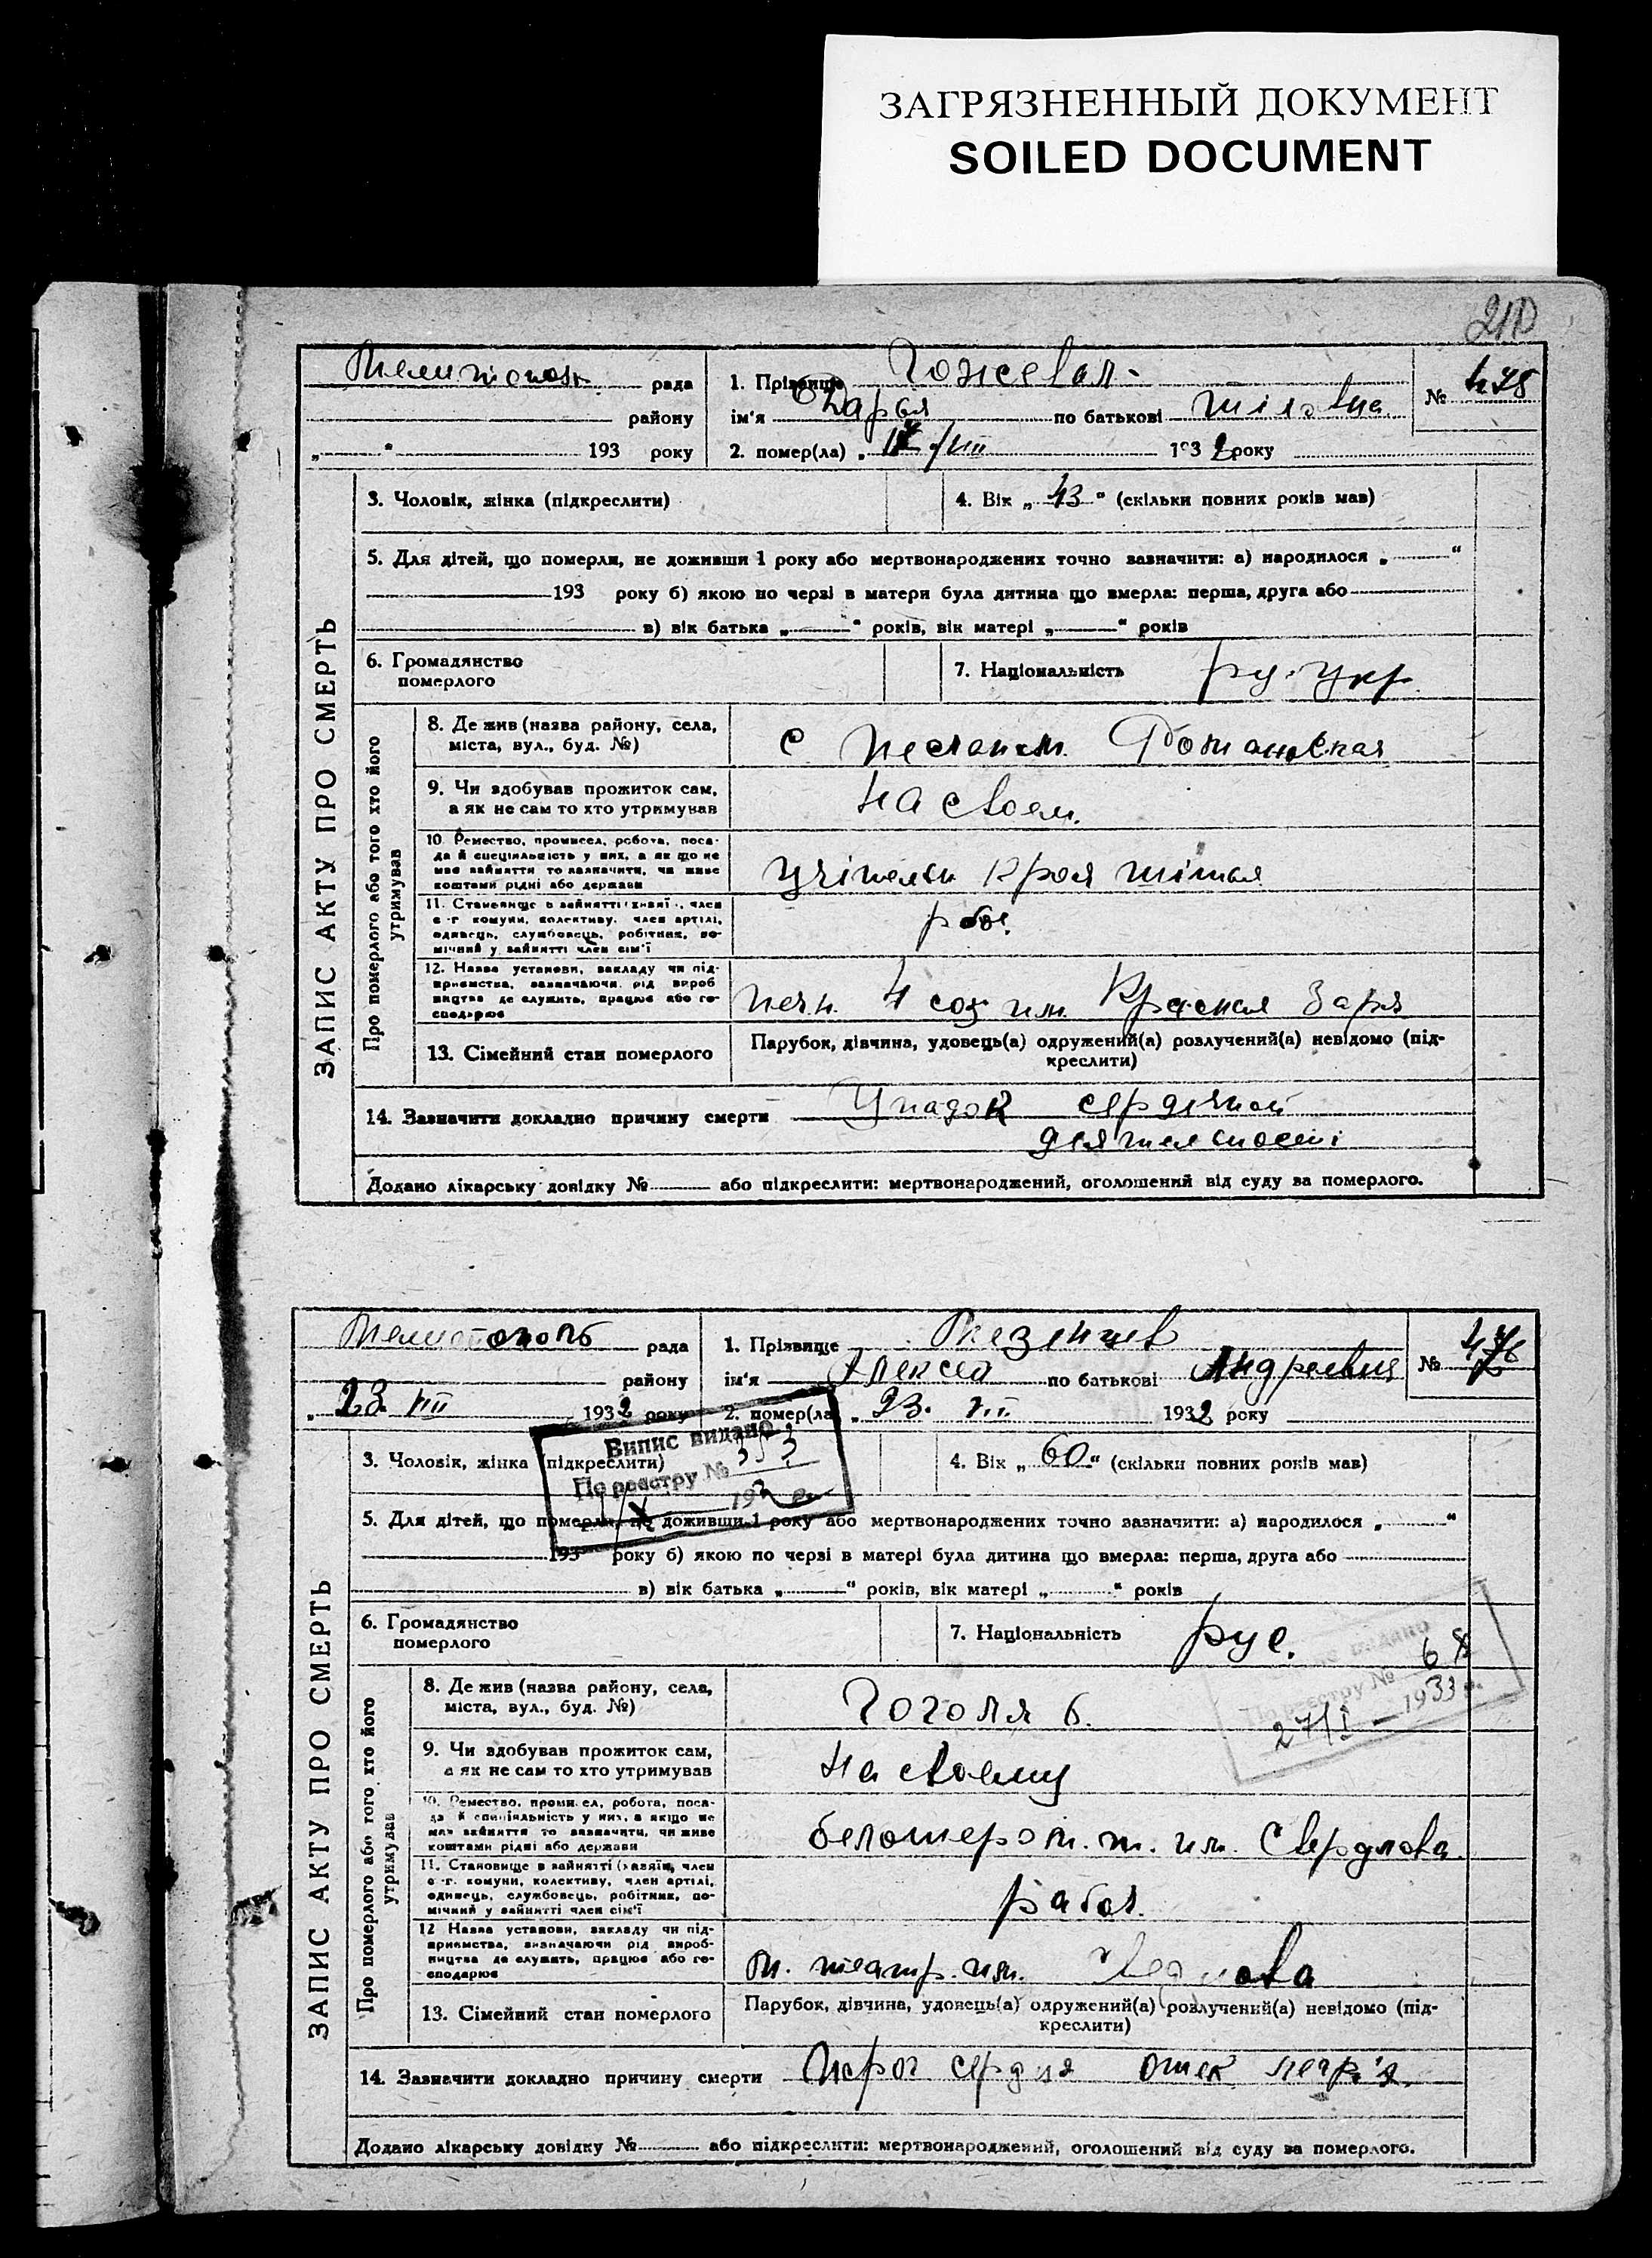 ЗАГРЯЗНЕННЫЙ ДОКУМЕНТ
SOILED DOCUMENT
ЗАПИС АКТУ ПРО СМЕРТЬ
рада
району
„ “ 193 року
1. Прізвище
ім'я Дарья по батькові
2. помер(ла) „ /VIII 1932 року
№ 475
3. Чоловік, жінка (підкреслити)
4. Вік „ 43 “ (скільки повних років мав)
5. Для дітей, що померли, не доживши 1 року або мертвонароджених точно зазначити: а) народилося „ “
193 року б) якою по черзі в матери була дитина що вмерла: перша, друга або
в) вік батька „ “ років, вік матері „ “ років
6. Громадянство
померлого
7. Національність укр.
Про померлого або того хто його
утримував
8. Де жив (назва району, села,
міста, вул., буд. №)
с
9. Чи здобував прожиток сам,
а як не сам то хто утримував
на своем.
10. Ремество, промисел, робота, поса-
да й спеціяльність у них, а як що не
мав зайняття то зазначити, чи живе
коштами рідні або держави
11. Становище в зайнятті (хазяїн, член
с.-г. комуни, колективу, член артілі,
одинець, службовець, робітник, по-
мічний у зайнятті член сім'ї
12. Назва установи, закладу чи під-
приємства, зазначаючи рід вироб
ництва де служить, працює або го-
сподарює
им. Красная Заря
13. Сімейний стан померлого
Парубок, дівчина, удовець(а) одружений(а) розлучений(а) невідомо (під-
креслити)
14. Зазначити докладно причину смерти Упадок сердечной
деятельності
Додано лікарську довідку № або підкреслити: мертвонароджений, оголошений від суду за померлого.
ЗАПИС АКТУ ПРО СМЕРТЬ
рада
району
„ 23 VIII 1932 року
1. Прізвище
ім'я Алексей по батькові Андреевич
2. помер(ла) „ 23. 1932 року
№ 476
Випис видано
По реєстру № 353
3. Чоловік, жінка (підкреслити)
4. Вік „ 60 “ (скільки повних років мав)
5. Для дітей, що померли, не доживши 1 року або мертвонароджених точно зазначити: а) народилося „ “
193 року б) якою по черзі в матері була дитина що вмерла: перша, друга або
в) вік батька „ “ років, вік матері „ “ років
6. Громадянство
померлого
7. Національність рус.
видано
По реєстру № 68
27/I 1933 р.
Про померлого або того хто його
утримував
8. Де жив (назва району, села,
міста, вул., буд. №)
Гоголя 6.
9. Чи здобував прожиток сам,
а як не сам то хто утримував
На своему
10. Ремество, промисел, робота, поса-
да й спеціяльність у них, а якщо не
мав зайняття то зазначити, чи живе
коштами рідні або держави
им. Свердлова.
11. Становище в зайнятті (хазяїн, член
с.-г. комуни, колективу, член артілі,
одинець, службовець, робітник, по-
мічний у зайнятті член сім'ї
рабоч.
12 Назва установи, закладу чи під-
приємства, визначаючи рід вироб-
ництва де служить, працює або го-
сподарює
театр. им.
13. Сімейний стан померлого
Парубок, дівчина, удовець(а) одружений(а) розлучений(а) невідомо (під-
креслити)
14. Зазначити докладно причину смерти Порог сердца отек
Додано лікарську довідку № або підкреслити: мертвонароджений, оголошений від суду за померлого.